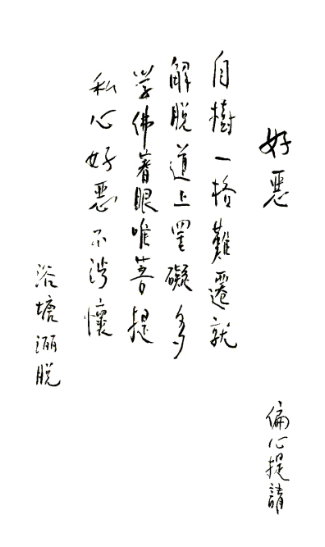 好惡
偏心提請
自樹一格難遷就
解脫道上罣礙多
学佛着眼唯菩提
私心好惡不涉懷
浴塘洒脫